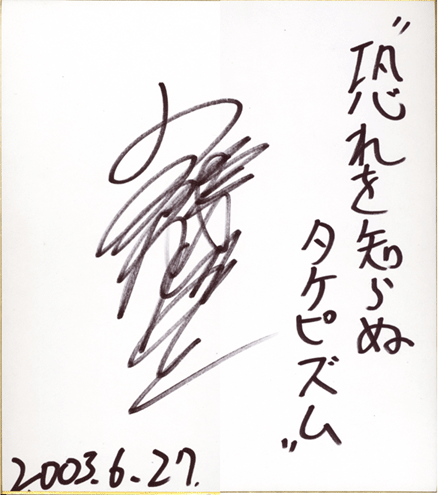 “恐れを知らぬ
タケピズム”
2003.6.27.